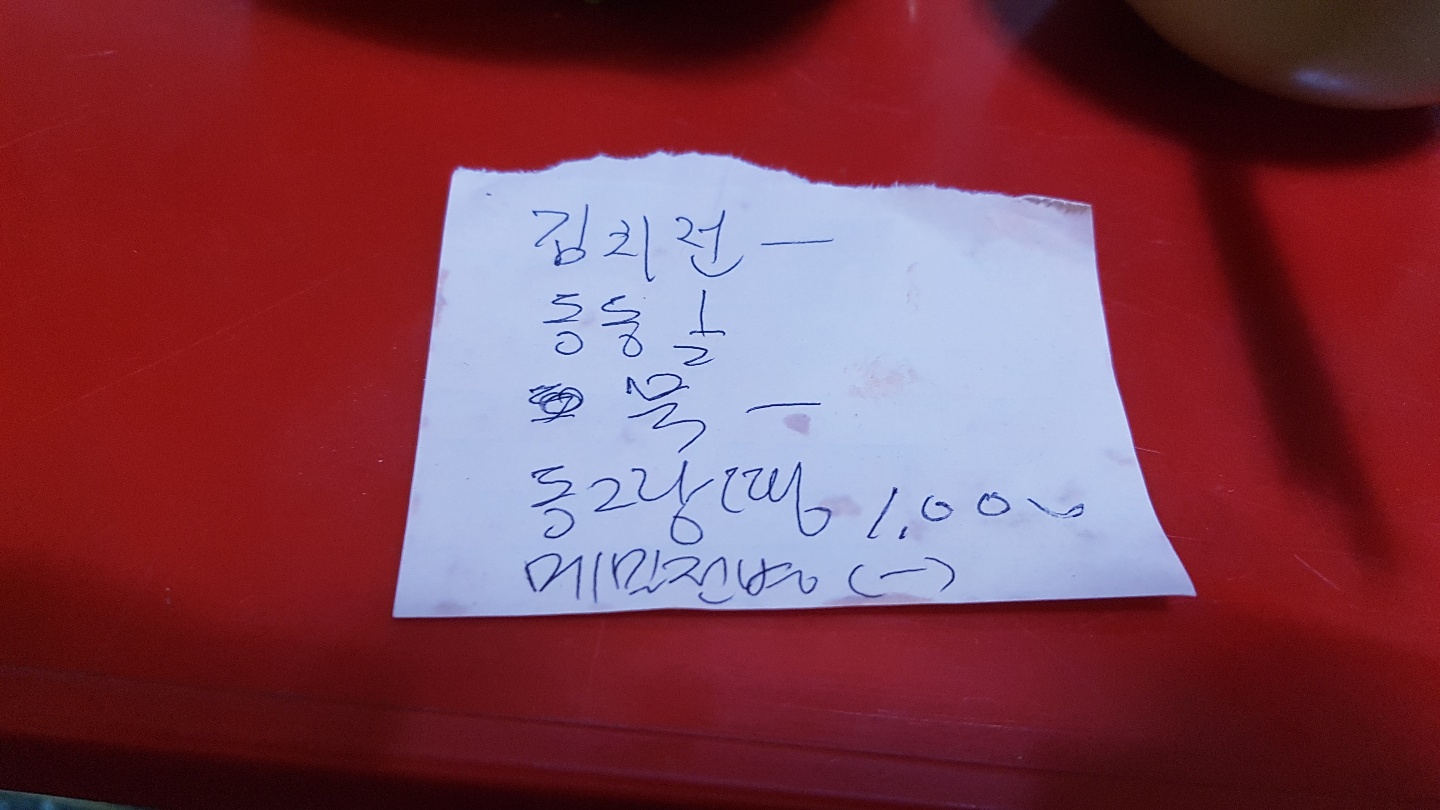 김치전 —
동동 1/2
묵 —
동그랑땡 1,000
메밀전병 (—)